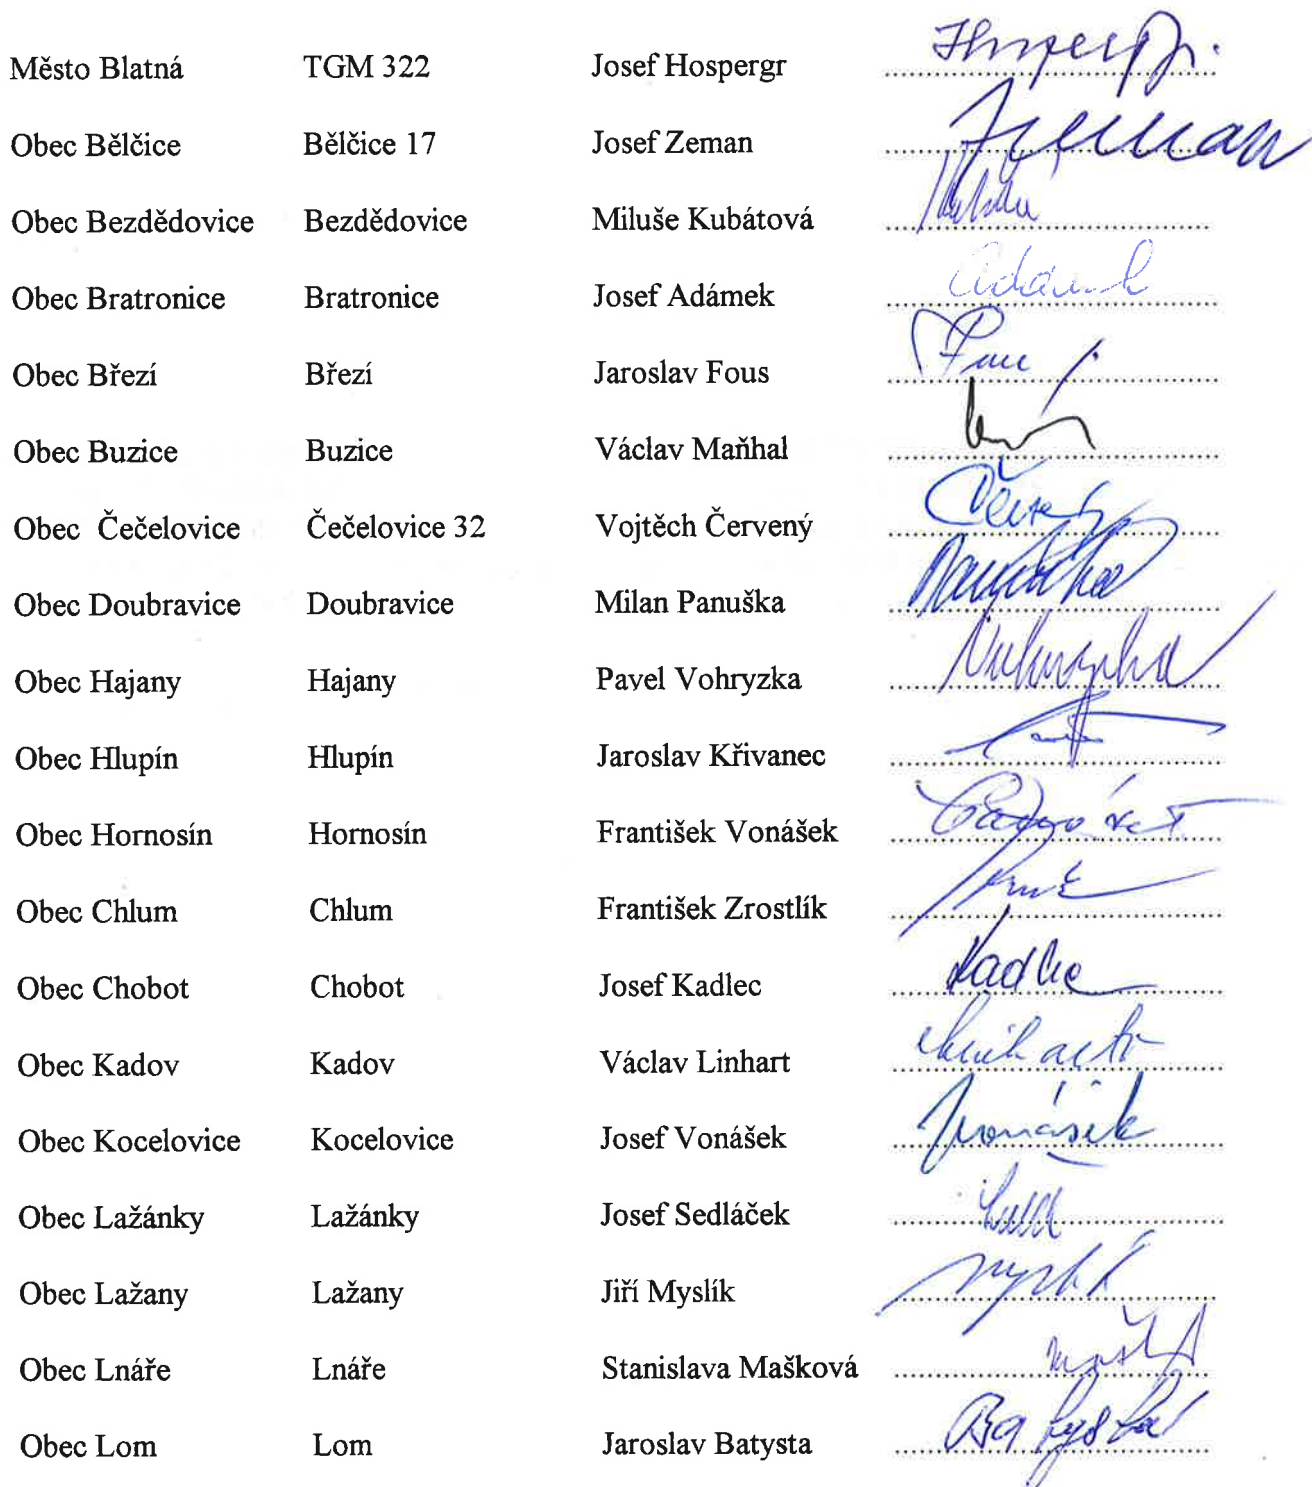 Město Blatná TGM 322 Josef Hospergr
Obec Bělčice Bělčice 17 Josef Zeman Zeman
Obec Bezdědovice Bezdědovice Miluše Kubátová
Obec Bratronice Bratronice Josef Adámek Adámek
Obec Březí Březí Jaroslav Fous
Obec Buzice Buzice Václav Maňhal
Obec Čečelovice Čečelovice 32 Vojtěch Červený
Obec Doubravice Doubravice Milan Panuška Panuška
Obec Hajany Hajany Pavel Vohryzka Vohryzka
Obec Hlupín Hlupín Jaroslav Křivanec
Obec Hornosín Hornosín František Vonášek
Obec Chlum Chlum František Zrostlík
Obec Chobot Chobot Josef Kadlec Kadlec
Obec Kadov Kadov Václav Linhart
Obec Kocelovice Kocelovice Josef Vonášek Vonášek
Obec Lažánky Lažánky Josef Sedláček
Obec Lažany Lažany Jiří Myslík
Obec Lnáře Lnáře Stanislava Mašková
Obec Lom Lom Jaroslav Batysta Batysta